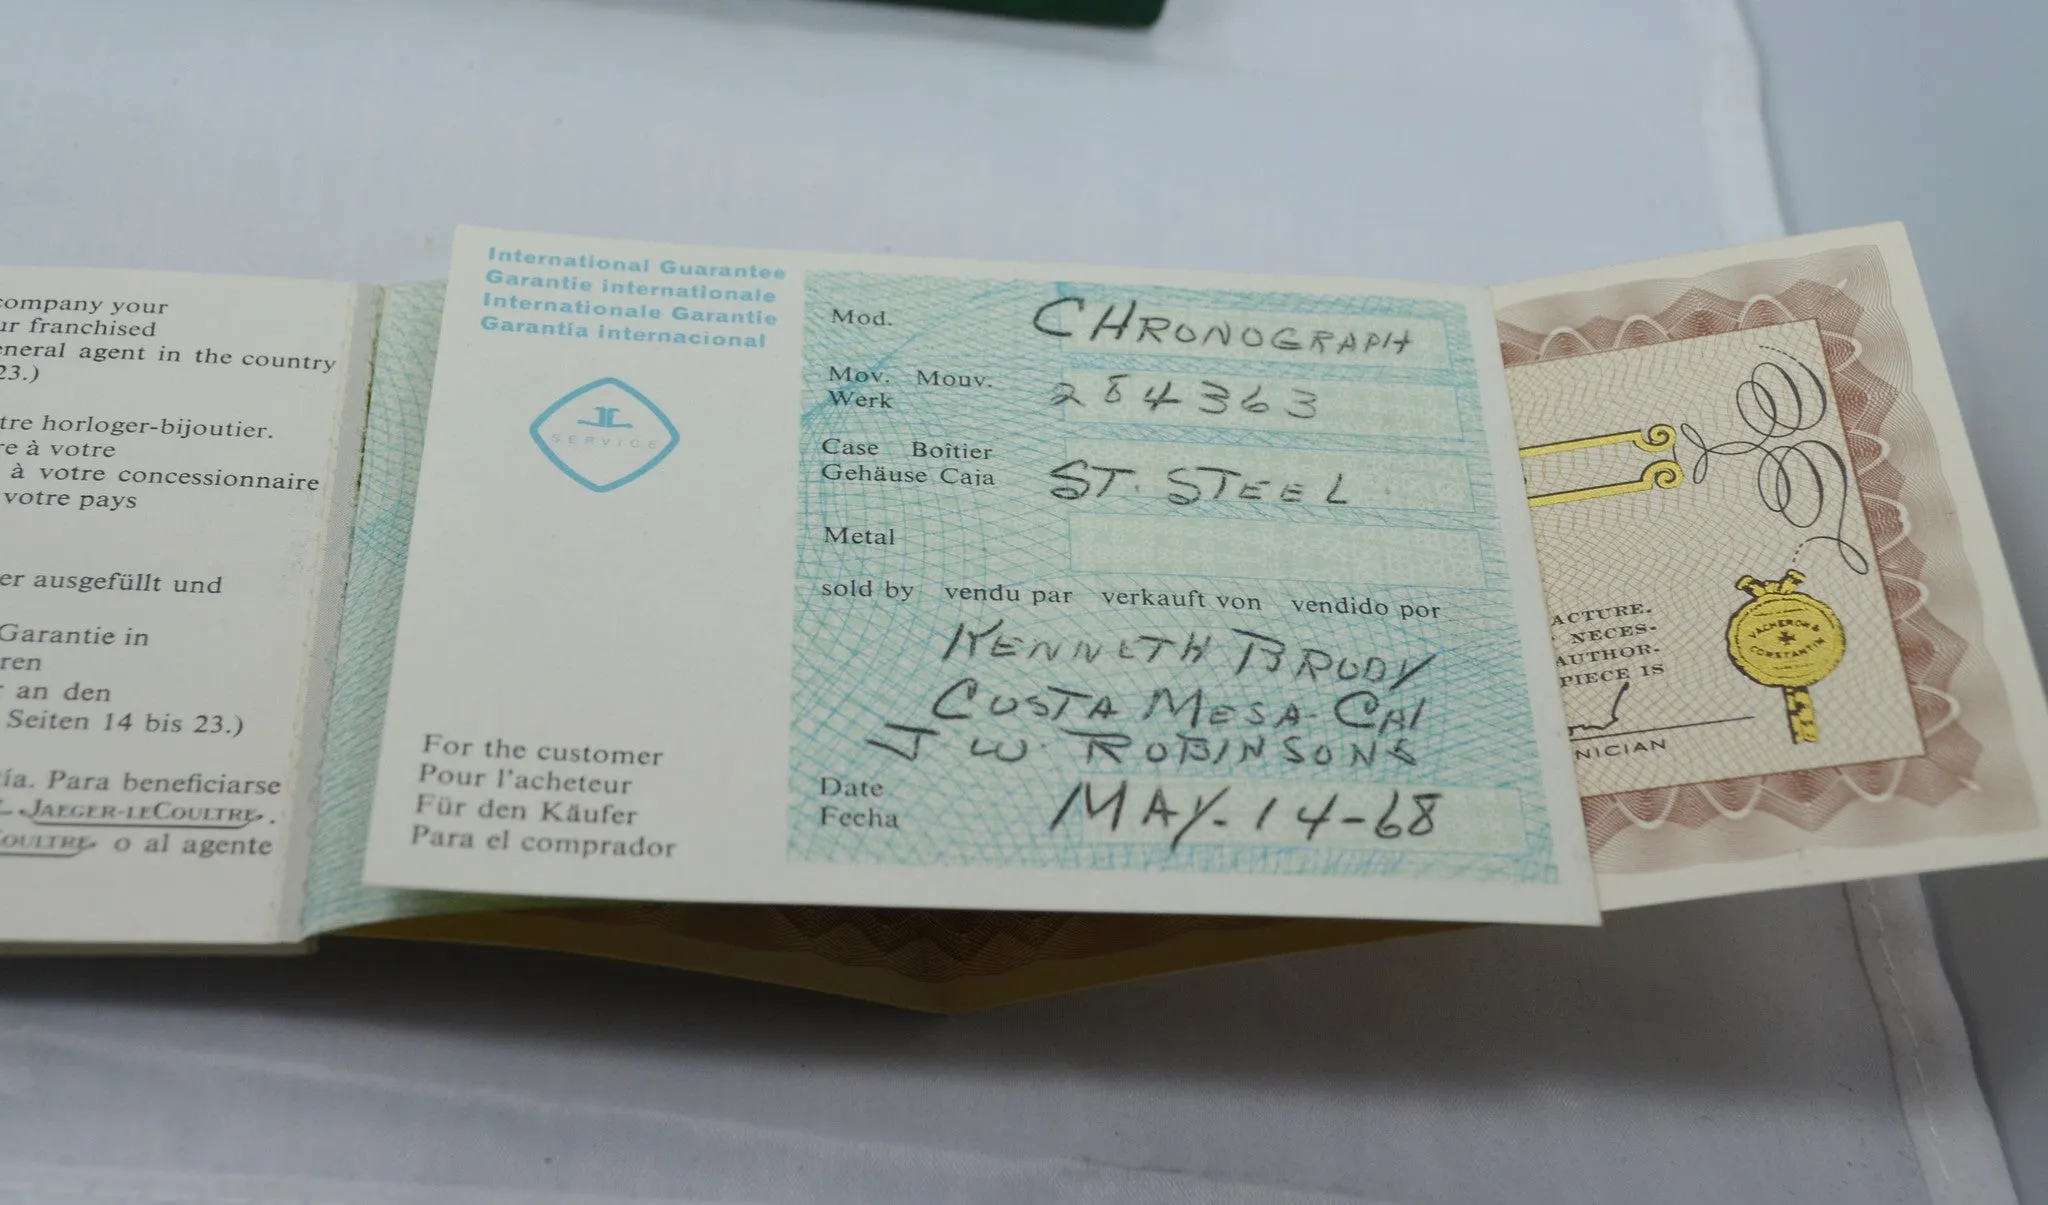 company your
ur franchised
eneral agent in the country
23.)
tre horloger-bijoutier.
re à votre
à votre concessionnaire
votre pays
er ausgefüllt und
Garantie in
ren
an den
Seiten 14 bis 23.)
ía. Para beneficiarse
JAEGER-LECOULTRE.
OULTRE o al agente
International Guarantee
Garantie internationale
Internationale Garantie
Garantía internacional
SERVICE
For the customer
Pour l'acheteur
Für den Käufer
Para el comprador
Mod. CHRONOGRAPH
Mov. Mouv.
Werk 284363
Case Boîtier
Gehäuse Caja ST. STEEL
Metal
sold by vendu par verkauft von vendido por
KENNETH BRUDY
CUSTA MESA-CAI
J W ROBINSONS
Date
Fecha MAY-14-68
ACTURE.
NECES-
AUTHOR-
PIECE IS
NICIAN
VACHERON &
CONSTANTIN